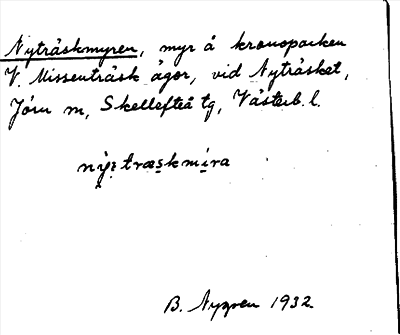 Nyträskmyren, myr å kronoparken
V. Missenträsk ägor, vid Nyträsket,
Jörn sn, Skellefteå tg, Västerb. l.
B. Nygren 1932